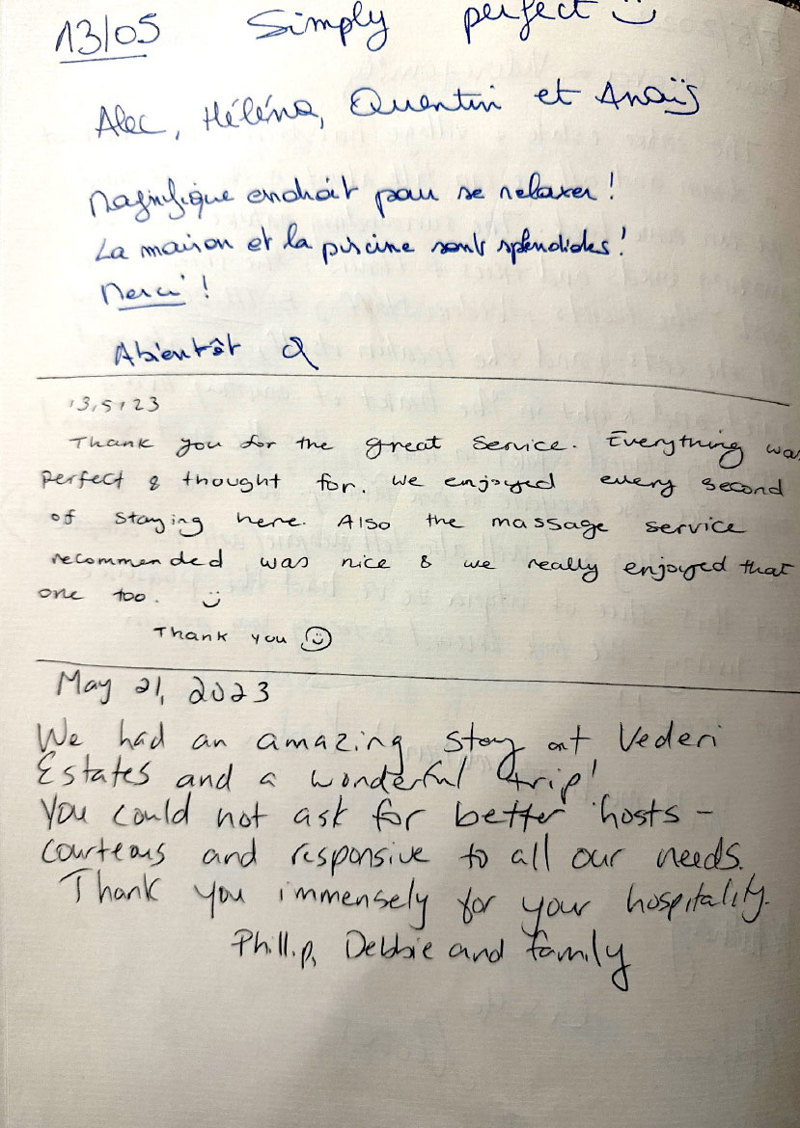 13/05 Simply perfect
Alec, Héléna, Quentin et Anaïs
Magnifique endroit pour se relaxer !
La maison et la piscine sont splendides !
Merci !
A bientôt
13,5,23
Thank you for the great service. Everything was
perfect & thought for. We enjoyed every second
of staying here. Also the massage service
recommended was nice & we really enjoyed that
one too.
Thank you
May 21, 2023
We had an amazing stay at Vederi
Estates and a wonderful trip!
You could not ask for better hosts -
courteous and responsive to all our needs.
Thank you immensely for your hospitality.
Phillip, Debbie and family